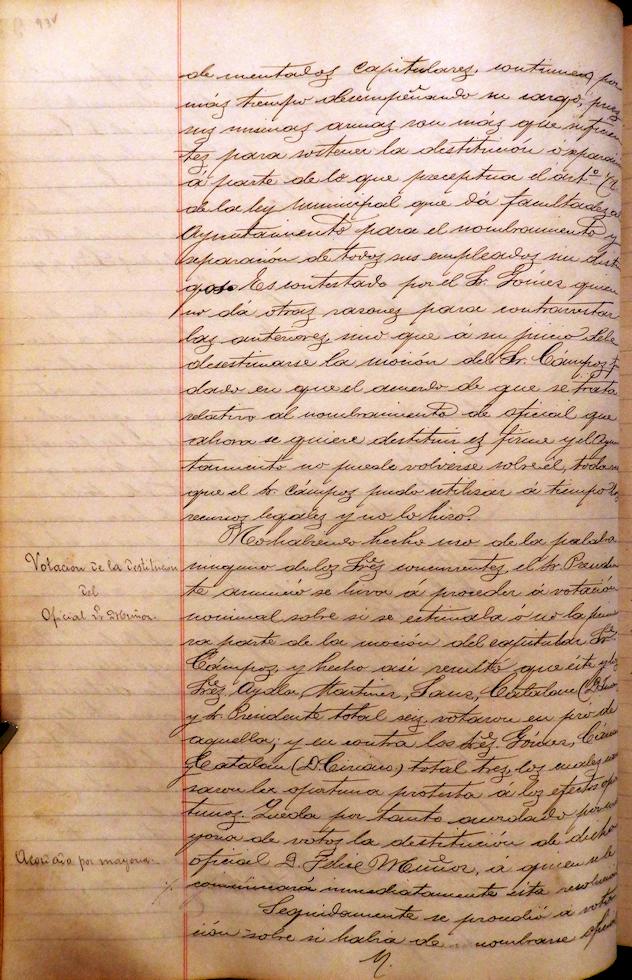 93v
de mentados capitulares, continuen por
más tiempo desempeñando su cargo, pues
sus mismas armas son más que suficien
tes para sostener la destitución ó separación
á parte de lo que preceptua el artº
de la ley municipal que dá facultades al
Ayuntamiento para el nombramiento y
separación de todos sus empleados sin disti
Es contestado por el Sr. Gómez quien
no dá otras razones para contrarrestar
las anteriores, sino que á su juicio debe
desestimarse la moción del Sr. Cámpos,
dado en que el acuerdo de que se trata
relativo al nombramiento de oficial que
ahora se quiere destituir es firme y el Ayun
tamiento no puede volverse sobre el, toda vez
que el Sr. Cámpos pudo utilizar á tiempo los
recursos legales y no lo hizo.
No habiendo hecho uso de la palabra
Votacion de la destitucion
del
Oficial Sr. Muñoz.
ninguno de los Sres concurrentes, el Sr. Presiden
te anunció se hiva á proceder á votación
nominal sobre si se estimaba ó no la prime
ra parte de la moción del capitular Sr.
Cámpos y hecho asi resultó que este y los
Sres. Ayala, Martinez, Sanz, Catalan (D.
y Sr. Presidente total seis votaron en pró de
aquella; y en contra los Sres. Gómez,
y Catalan (D. Ciriaco) total tres, los cuales
saron la oportuna protesta á los efectos opor
tunos. Queda por tanto acordado por ma
yoria de votos la destitución de dicho
Acordado por mayoria.
oficial D. Felix Muñoz, á quien se le
comunicará inmediatamente esta resolucion
Seguidamente se procedió á vota
ción sobre si habia de nombrarse oficial